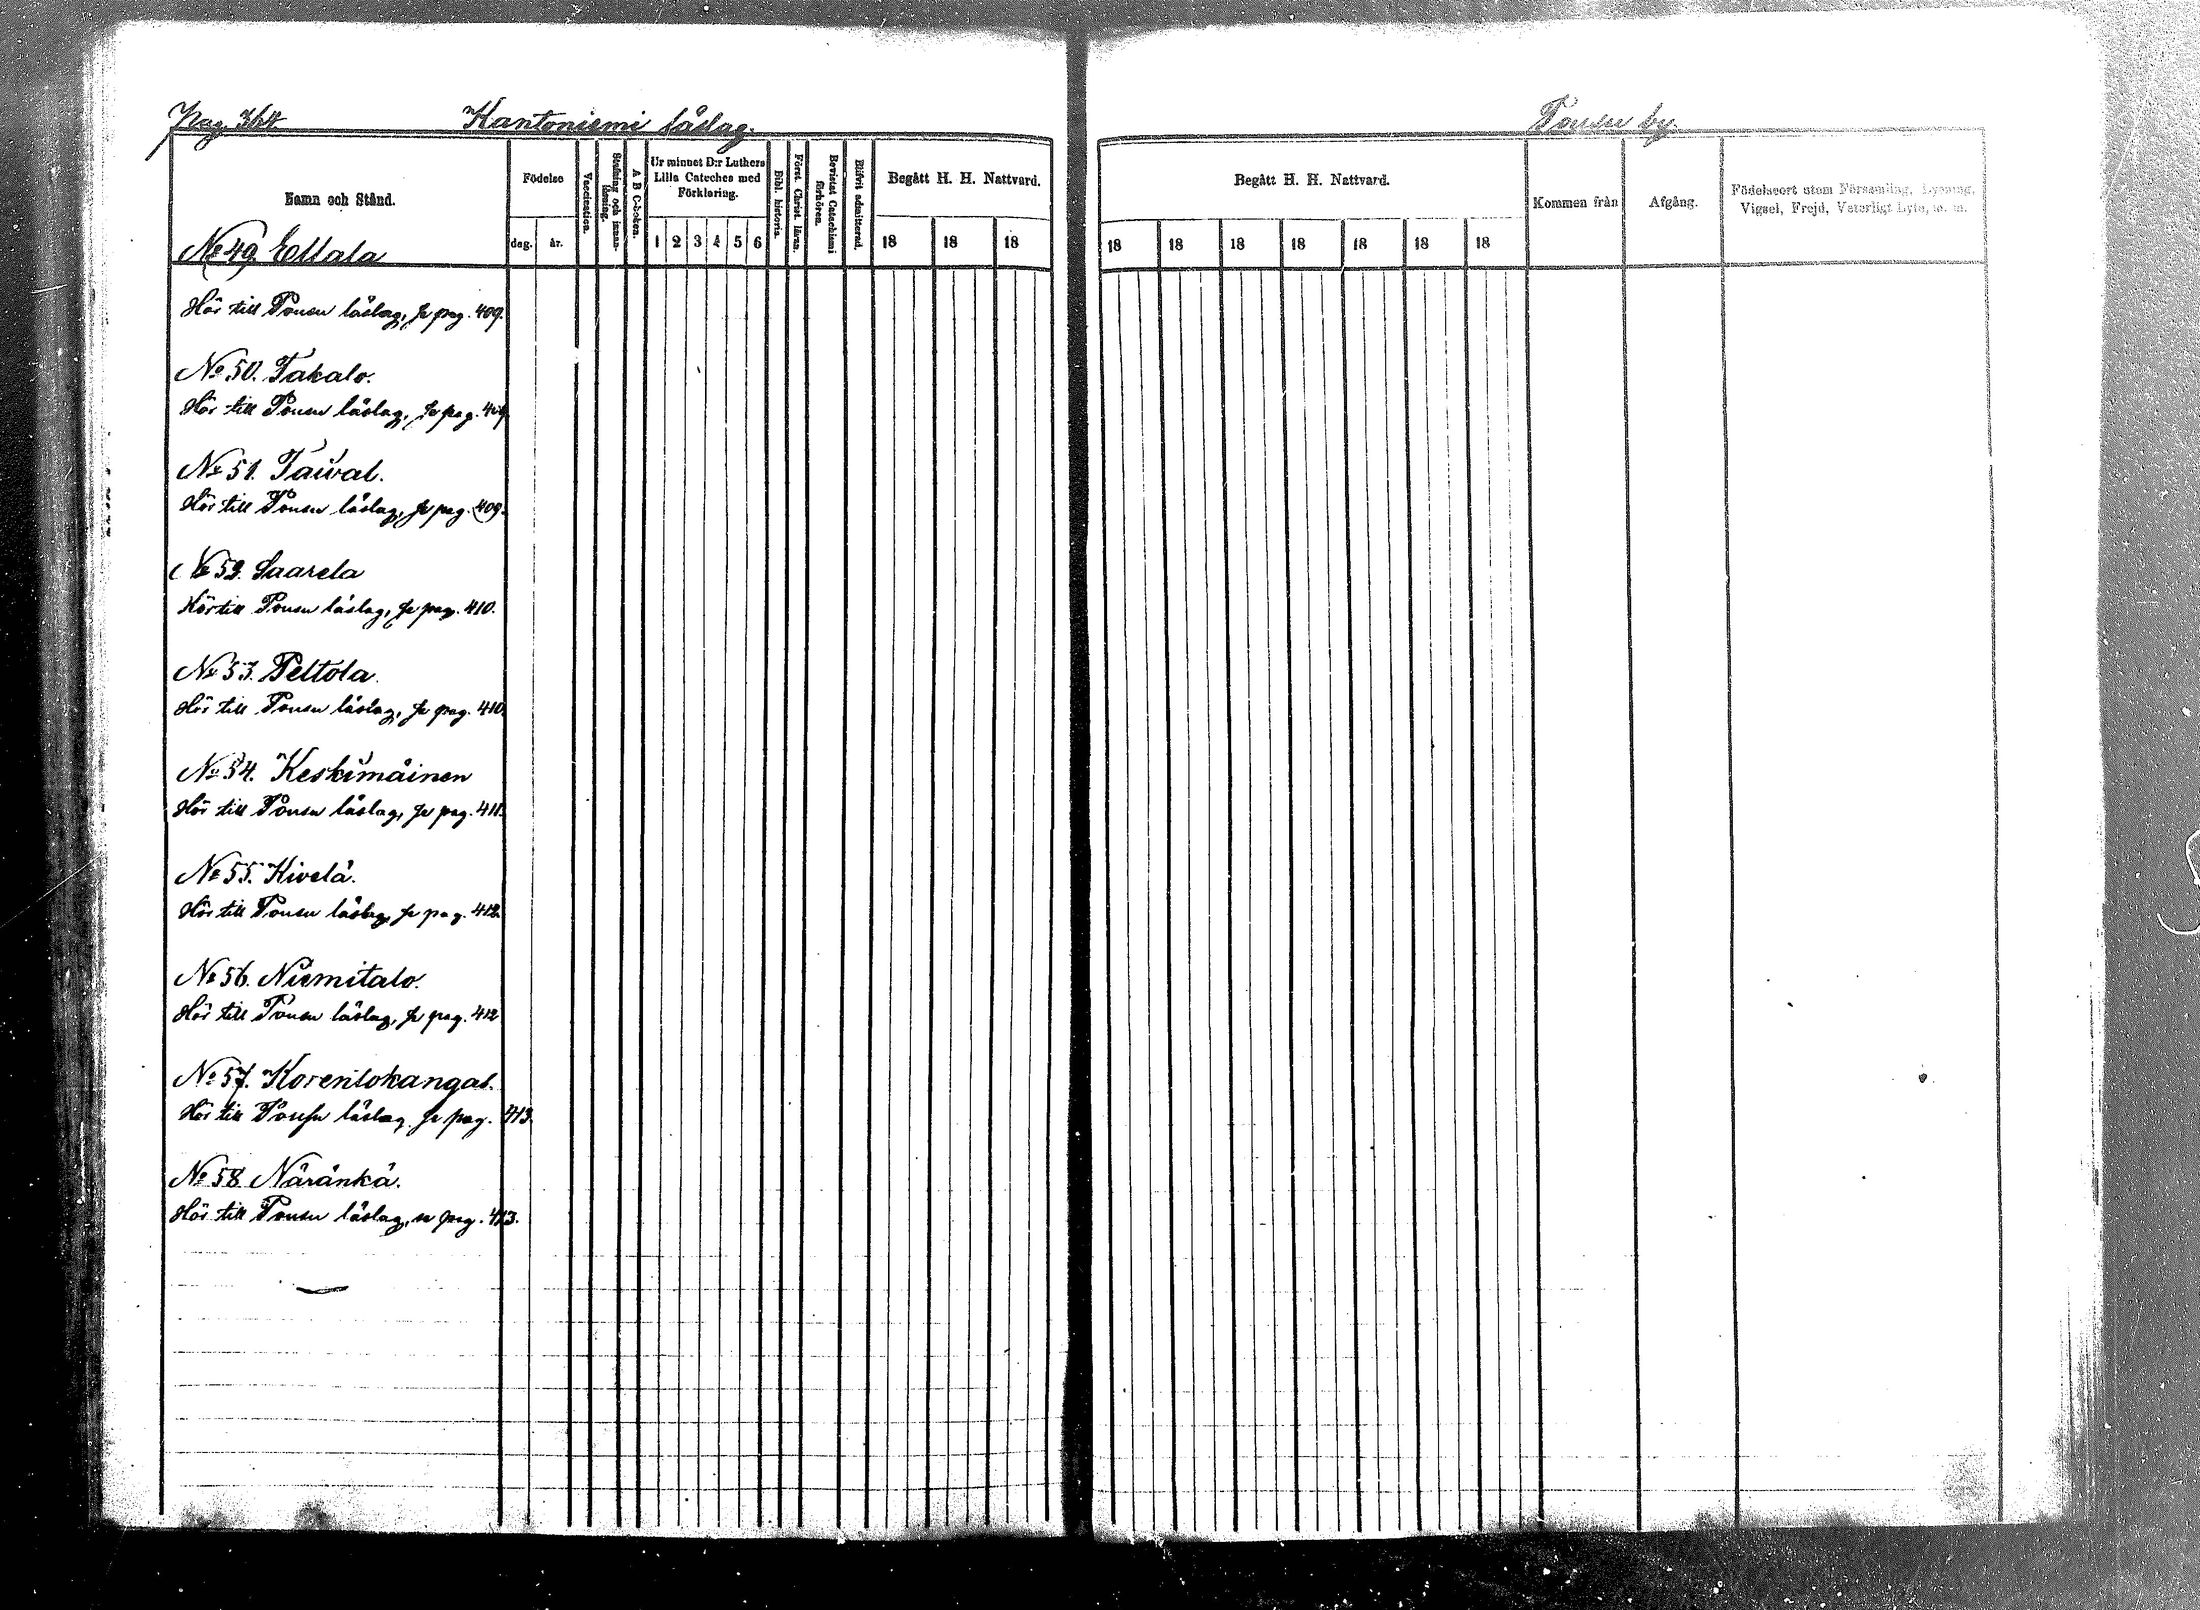 Pag. 364
Kantoniemi låslag.
Namn och Stånd.
Födelse
dag.
år.
Vaccination.
Stafning och innan-
läsning.
A B C-boken.
Ur minnet D:r Luthers
Lilla Cateches med
Förklaring.
1 2 3 4 5 6
Bibl. historia.
Först. Christ. läran.
Bevistat Catechismi
förhören.
Blifvit admitterad.
Begått H. H. Nattvard.
18 18 18
No 49 Ellala
Hör till Pousu låslag, se pag. 409.
No 50. Takalo.
Hör till Pousu låslag, se pag.
No 51. Taival.
Hör till Pousu låslag, se pag. 409.
No 52. Saarela
Hör till Pousu låslag, se pag. 410.
No 53. Peltola.
Hör till Pousu låslag, se pag. 410
No 54. Keskimäinen
Hör till Pousu låslag, se pag. 411.
No 55. Kivelä.
Hör till Pousu låslag, se pag. 412
No 56. Niemitalo.
Hör till Pousu låslag, se pag. 412
No 57. Korentokangas.
Hör till Pousu låslag se pag. 413.
No 58 Näränkä.
Hör till Pousu låslag, se pag. 413.
Pousu by.
Begått H. H. Nattvard.
18 18 18 18 18 18 18
Kommen från
Afgång.
Födelseort utom Församling, Lysning,
Vigsel, Frejd, Vaterligt Lyte, m. m.